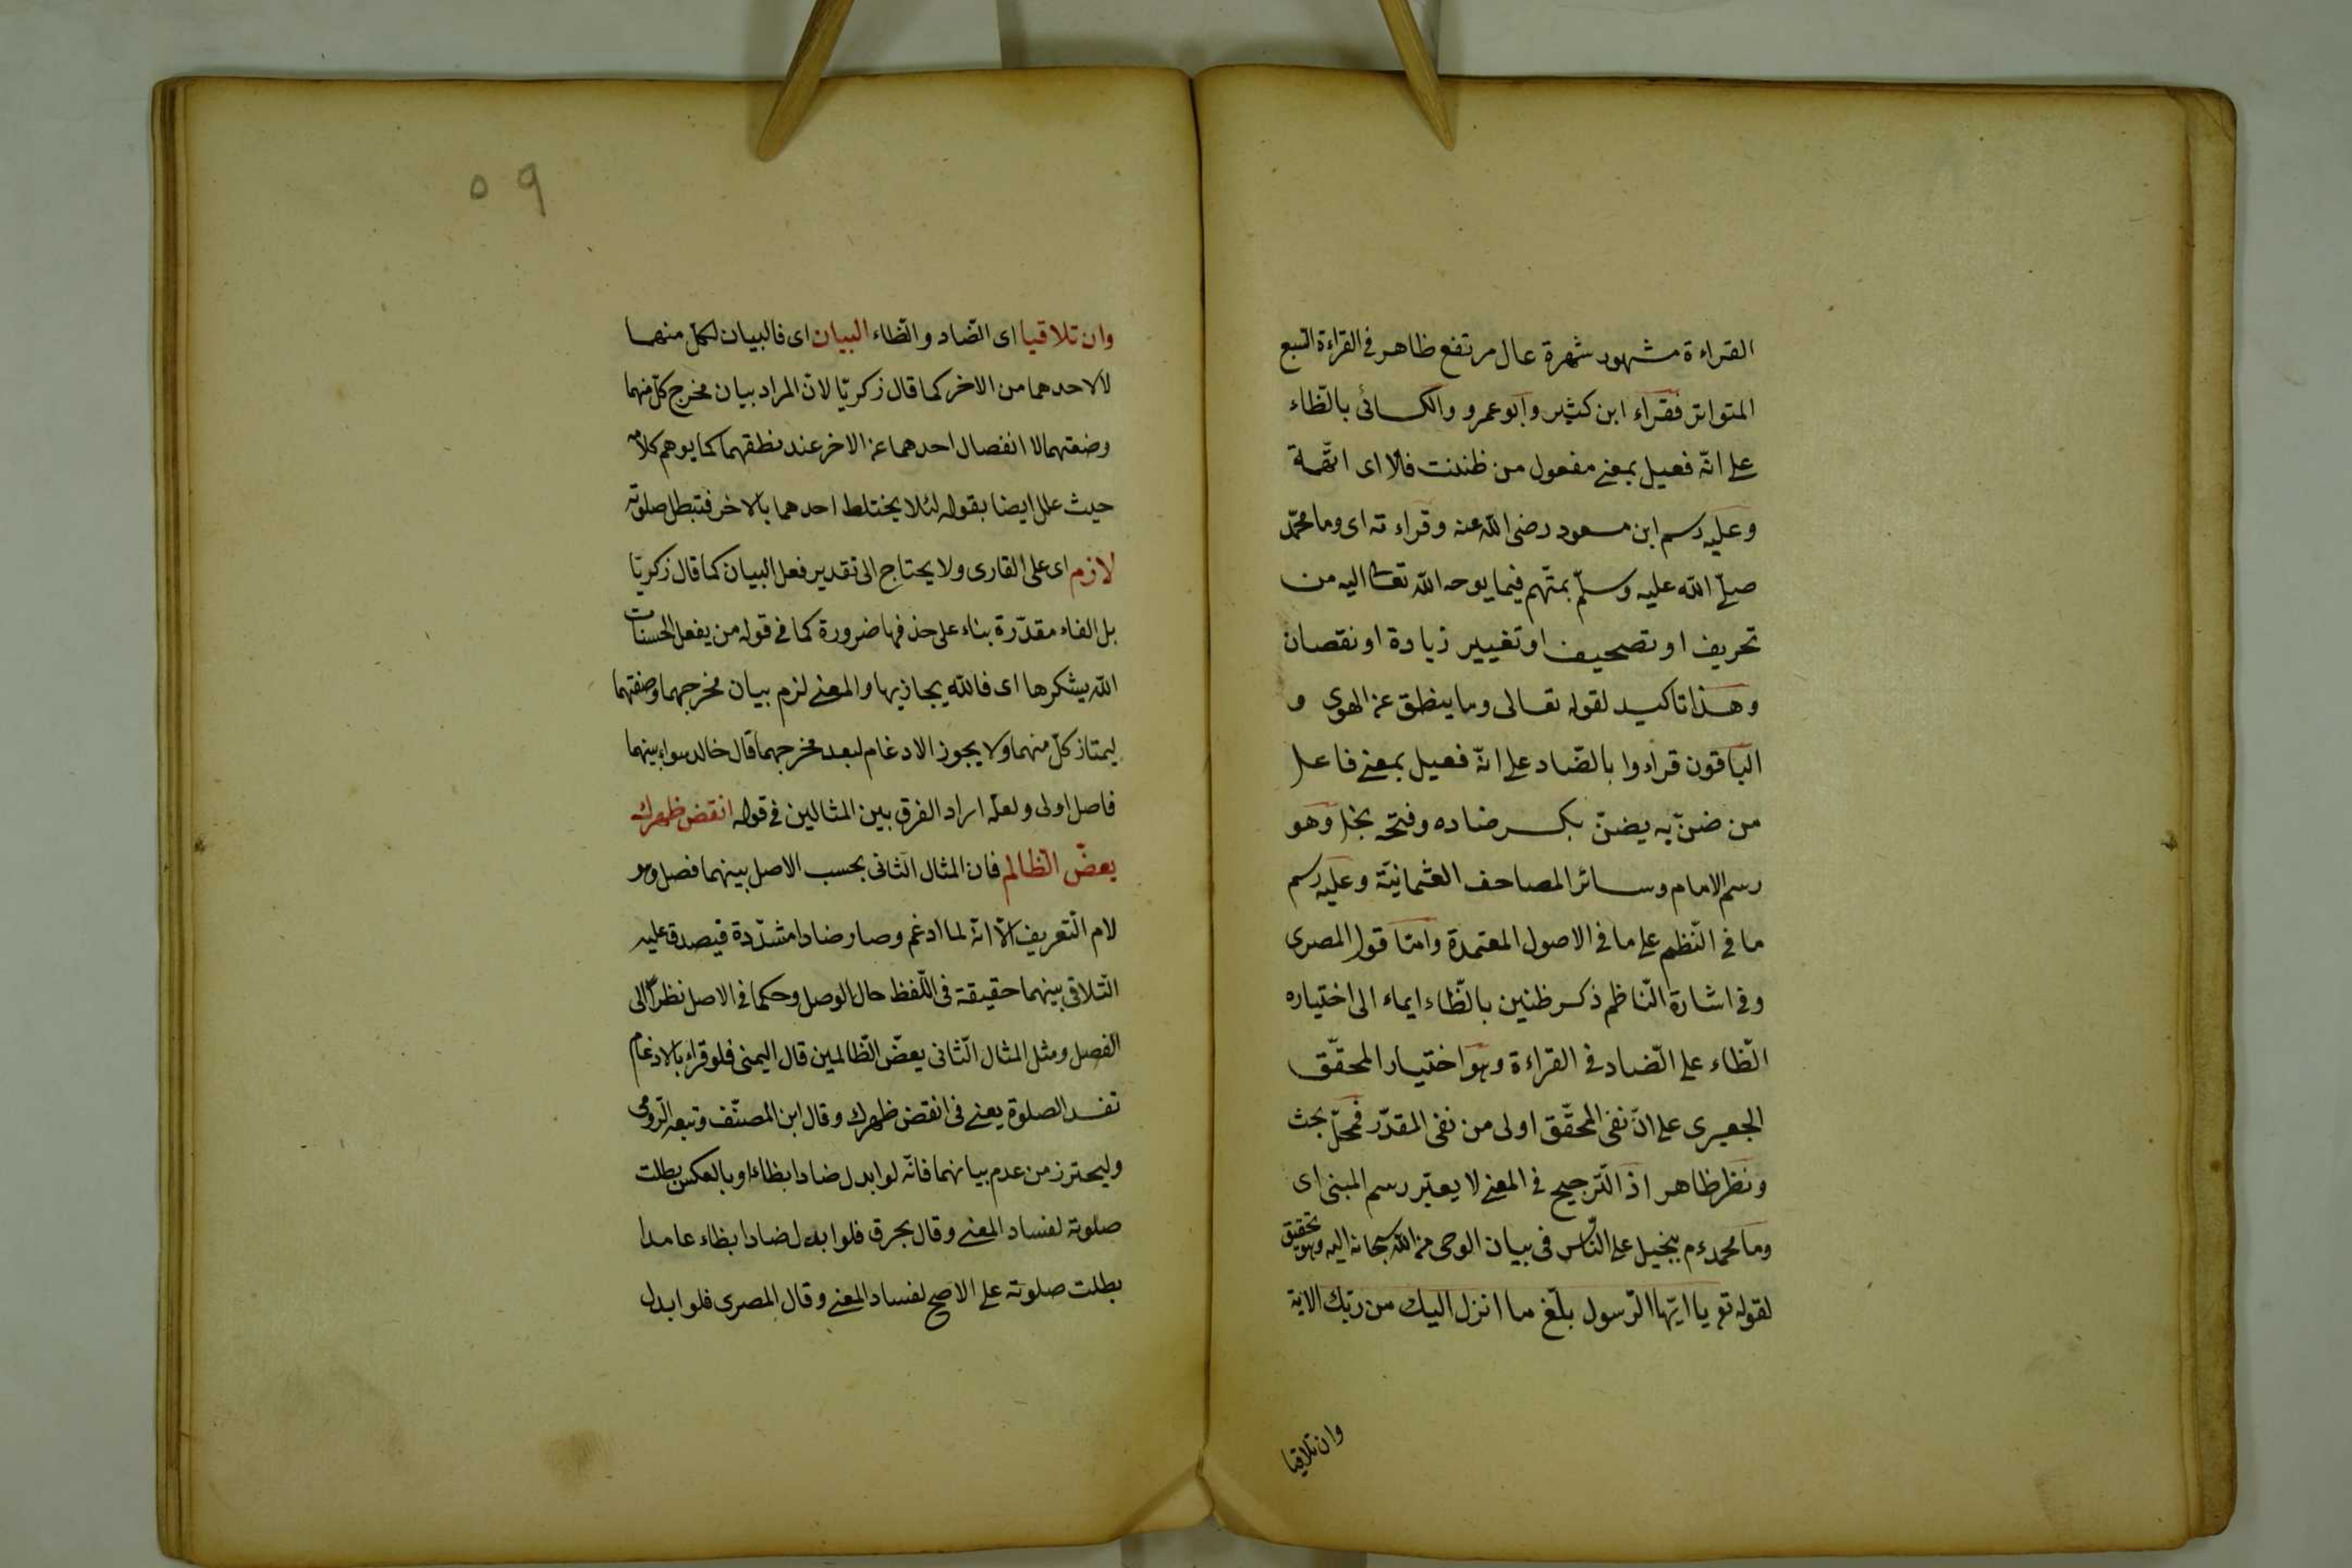 القراءة مشهود شهرة عال مرتفع ظاهر فى القراءة السبع
المتواتر فقراء ابن كثير وابو عمرو والكسائى بالظاء
على انّه فعيل بمعنى مفعول من ظننت فلانا اى اتهمته
وعليه رسم ابن مسعود رضى الله عنه وقراءته اى وما محمّد
صلّى الله عليه وسلّم بمتّهم فيما يوحه الله تعالى اليه من
تحريف او تصحيف او تغيير زيادة او نقصان
وهذا تاكيد لقوله تعالى وما ينطق عن الهوى و
الباقون قراءوا بالضّاد على انّه فعيل بمعنى فاعل
من ضنّ به يضنّ بكسر ضاده وفتحه بخل وهو
رسم الامام وسائر المصاحف العثمانيّة وعليه رسم
ما فى النّظم على ما فى الاصول المعتمدة وامّا قول المصرى
وفى اشارة النّاظم ذكر ظنين بالظّاء ايماء الى اختياره
الظّاء على الضّاد فى القراءة وهو اختيار المحقّق
الجعبرى على انّ نفى المحقّق اولى من نفى المقدّر فمحلّ بحث
ونظر ظاهر اذ التّرجيح فى المعنى لا يعتبر رسم المبنى اى
وما محمد ءم ببخيل على النّاس فى بيان الوحى من الله سبحانه اليه وهو تحقيق
لقوله تع يا ايّها الرّسول بلّغ ما انزل اليك من ربّك الاية
وان تلاقيا
٥٩
وان تلاقيا اى الضّاد والظّاء البيان اى فالبيان لكلّ منهما
لا لاحدهما من الاخر كما قال زكريّا لانّ المراد بيان مخرج كلّ منهما
وصفتهما لا انفصال احدهما عن الاخر عند نطقهما كما يوهم كلامه
حيث علل ايضا بقوله لئلا يختلط احدهما بالاخر فتبطل صلوته
لازم اى على القارى ولا يحتاج الى تقدير فعل البيان كما قال زكريّا
بل الفاء مقدّرة بناء على حذفها ضرورة كما فى قوله من يفعل الحسنات
الله يشكرها اى فالله يجازيها والمعنى لزم بيان مخرجهما وصفتهما
ليمتاز كلّ منهما ولا يجوز الادغام لبعد مخرجهما قال خالد سواء بينهما
فاصل اولى ولعله اراد الفرق بين المثالين فى قوله انقض ظهرك
يعضّ الظالم فان المثال الثانى بحسب الاصل بينهما فصل وهو
لام التّعريف الّا انّه لما ادغم وصار ضادا مشدّدة فيصدق عليه
التّلاقى بينهما حقيقة فى اللّفظ حال الوصل وحكما فى الاصل نظرًا الى
الفصل ومثل المثال الثّانى يعضّ الظّالمين قال اليمنى فلو قراء بالادغام
تفسد الصلوة يعنى فى انقض ظهرك وقال ابن المصنّف وتبعه الرّومى
وليحترز من عدم بيانهما فانّه لو ابدل ضادا بظاء او بالعكس بطلت
صلوته لفساد المعنى وقال بحرق فلو ابدل ضادا بظاء عامدا
بطلت صلوته على الاصح لفساد المعنى وقال المصرى فلو ابدل